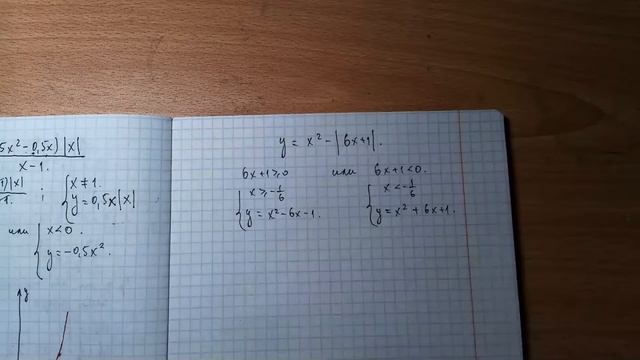 5x² - 0,5x) |x|
x-1.
1)|x|
-1. ; { x ≠ 1.
y = 0,5x|x|
или { x < 0.
y = -0,5x².
y
y = x² - |6x+1|.
6x+1 ≥ 0 или 6x+1 < 0.
{ x ≥ -1/6 { x < -1/6
y = x² - 6x - 1. y = x² + 6x + 1.